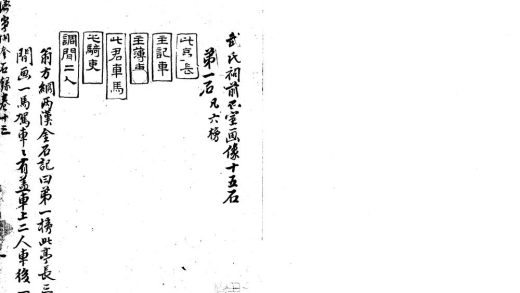 武氏祠前石室画像十五石
第一石 凡六榜
此亭長
主記車
主簿車
此君車馬
騎吏
調間二人
翁方綱兩漢金石記曰第一榜此亭長三
間画一馬駕車〻有蓋車上二人車後
州金石錄卷十三